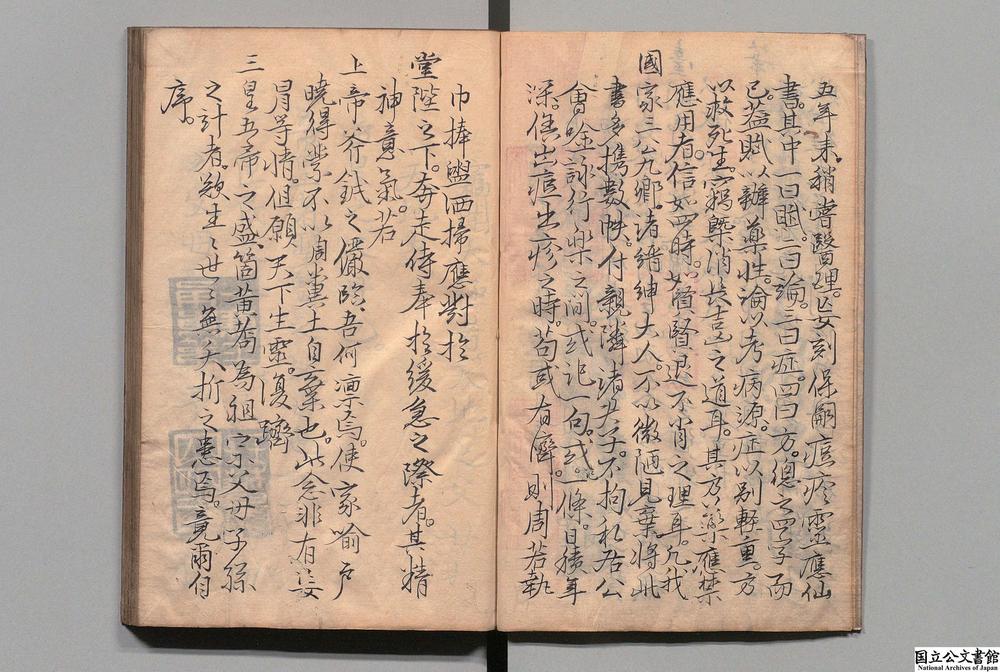 五年來。稍嘗醫理。妄刻保嗣痘疹靈應仙
書。其中一曰賦。二曰論。三曰症。四曰方。總之四字而
已。蓋賦以辯藥性。論以考病源。症以别輕重。方
以救死生。寓槩消長吉凶之道耳。其方藥應禁
應用者。信如四時。如賢賢退不肖之理耳。凡我
國家三公九卿。諸縉紳大人。不以微陋見棄。將此
書多携數帙。付親隣諸夫子。不拘私居公
會吟詠行樂之間。或記一句。或一條。日積年
深。倘出痘出疹之時。苟或有癠。則周若執
巾捧盥洒掃應對於
堂陛之下。奔走侍奉於緩急之際者。其精
神意氣。若
上帝斧鉞之儼臨。吾何凛焉。使家喻戶
曉得蒙不以周糞土自棄也。此念非有妄
冐等情。但願天下生靈。復躋
三皇五帝之盛。箇黄耈為祖宗父母子孫
之計者。欵生生世世無夭折之患焉。竟爾自
序。
国立公文書館
National Archives of Japan